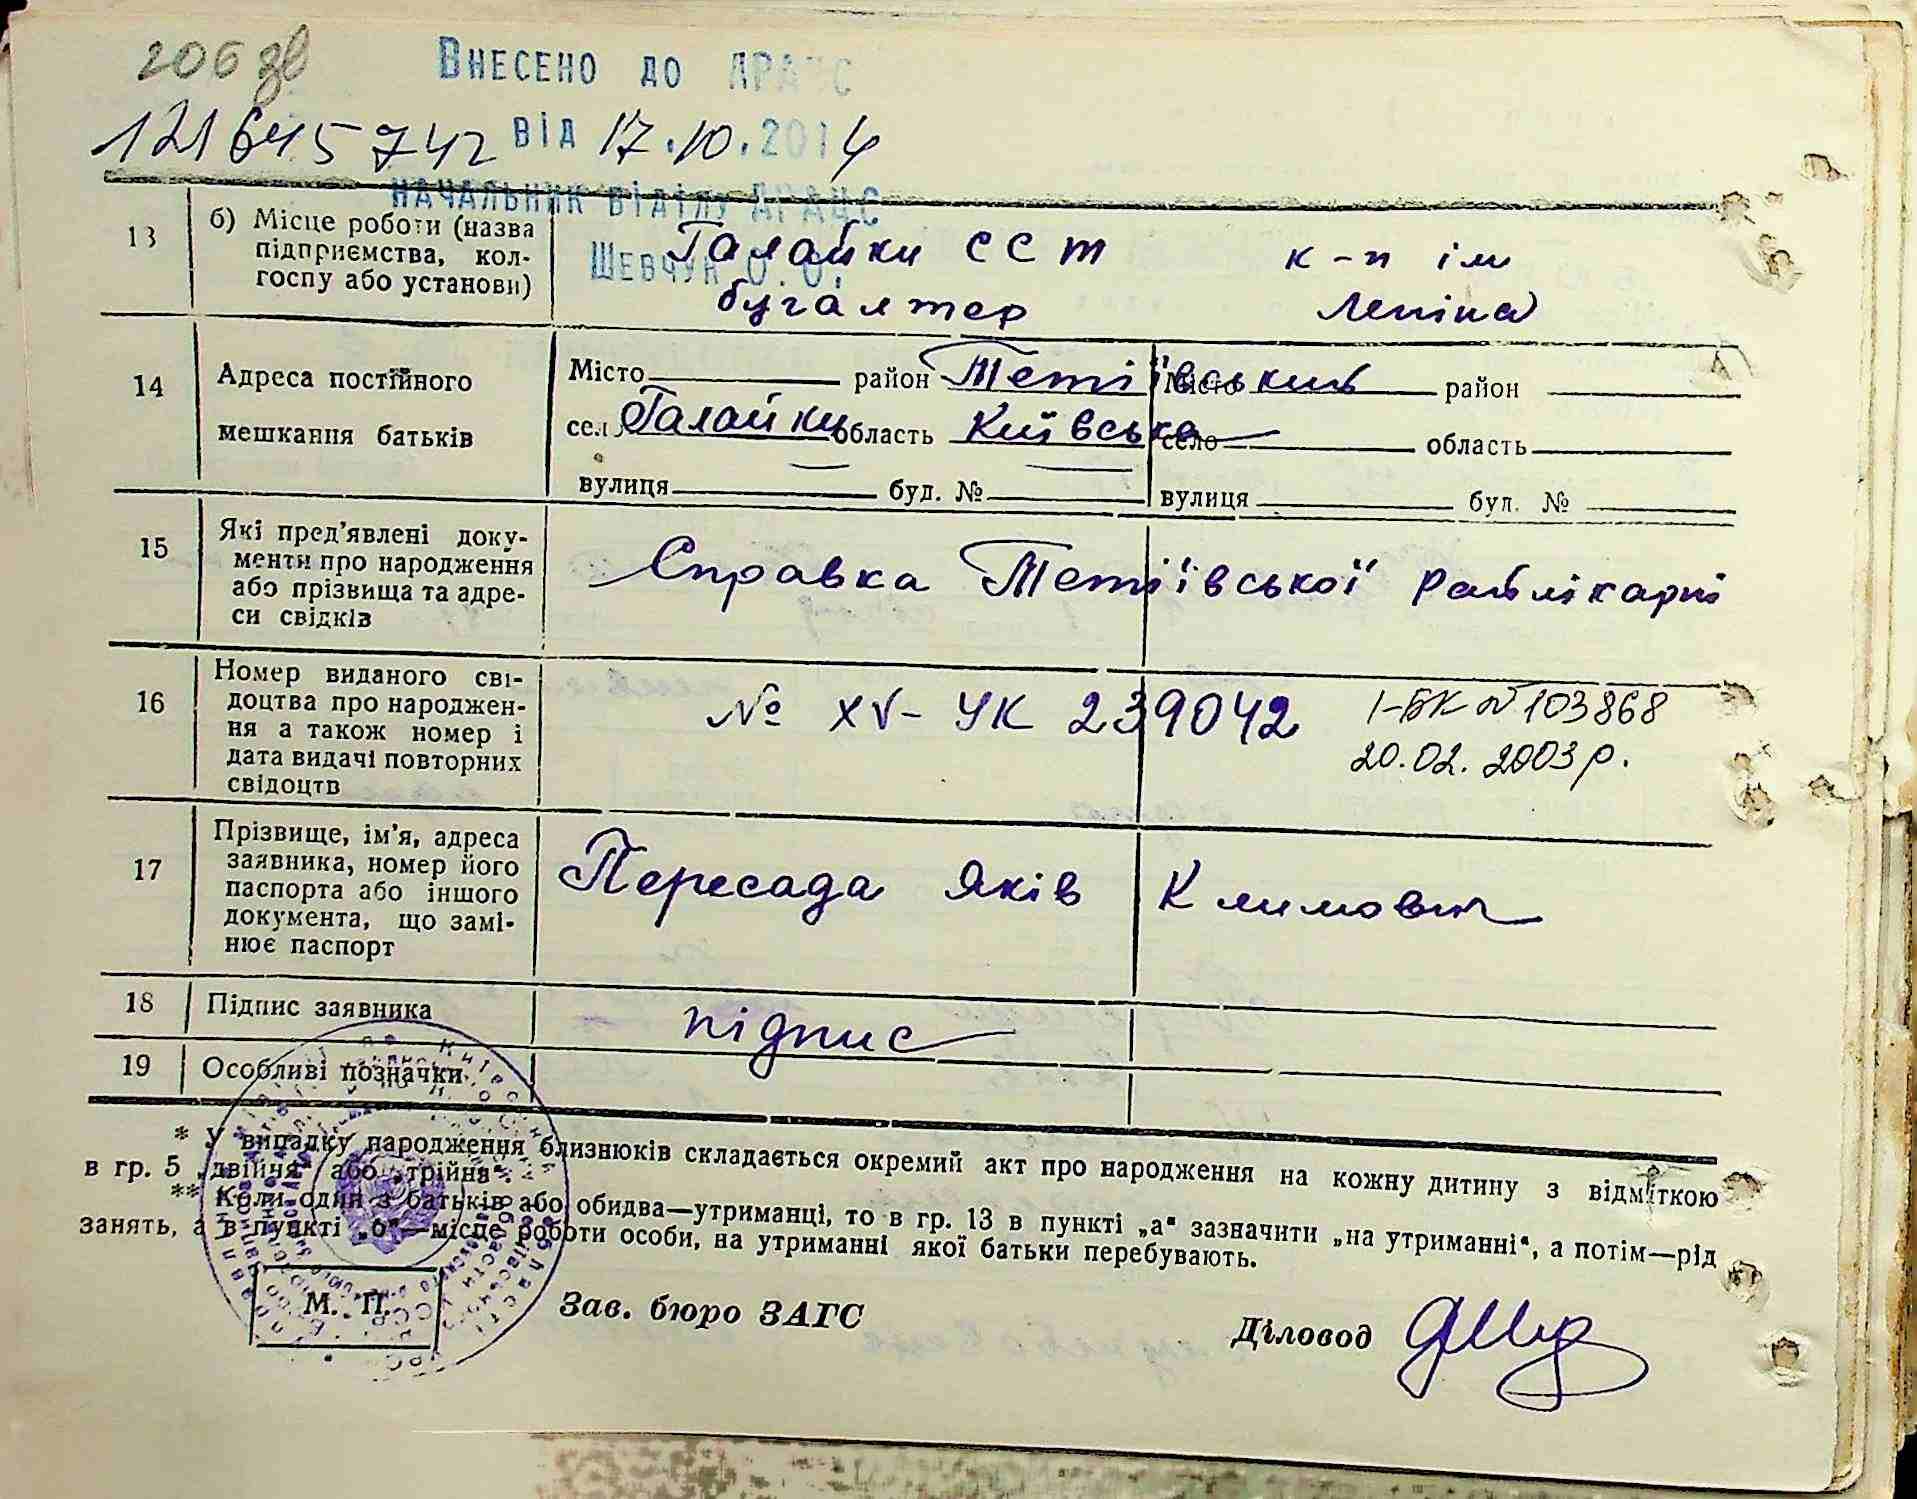 206 зв
Внесено до ДРАЦС
121645742 від 17.10.2014
Начальник відділу ДРАЦС
Шевчук О. О.
13 б) Місце роботи (назва підприємства, колгоспу або установи)
Галайки ССТ к-п ім
бугалтер Леніна
14 Адреса постійного мешкання батьків
Місто район Тетіївський Місто район
село Галайки область Київська село область
вулиця буд. № вулиця буд. №
15 Які пред'явлені документи про народження або прізвища та адреси свідків
Справка Тетіївської райлікарні
16 Номер виданого свідоцтва про народження а також номер і дата видачі повторних свідоцтв
№ XV-УК 239042 I-БК № 103868
20.02.2003 р.
17 Прізвище, ім'я, адреса заявника, номер його паспорта або іншого документа, що замінює паспорт
Пересада Яків Климович
18 Підпис заявника підпис
19 Особливі позначки
* У випадку народження близнюків складається окремий акт про народження на кожну дитину з відміткою
в гр. 5 „двійня" або „трійня".
** Коли один з батьків або обидва—утриманці, то в гр. 13 в пункті „а" зазначити „на утриманні", а потім—рід
занять, а в пункті „б"—місце роботи особи, на утриманні якої батьки перебувають.
М. П. Зав. бюро ЗАГС Діловод